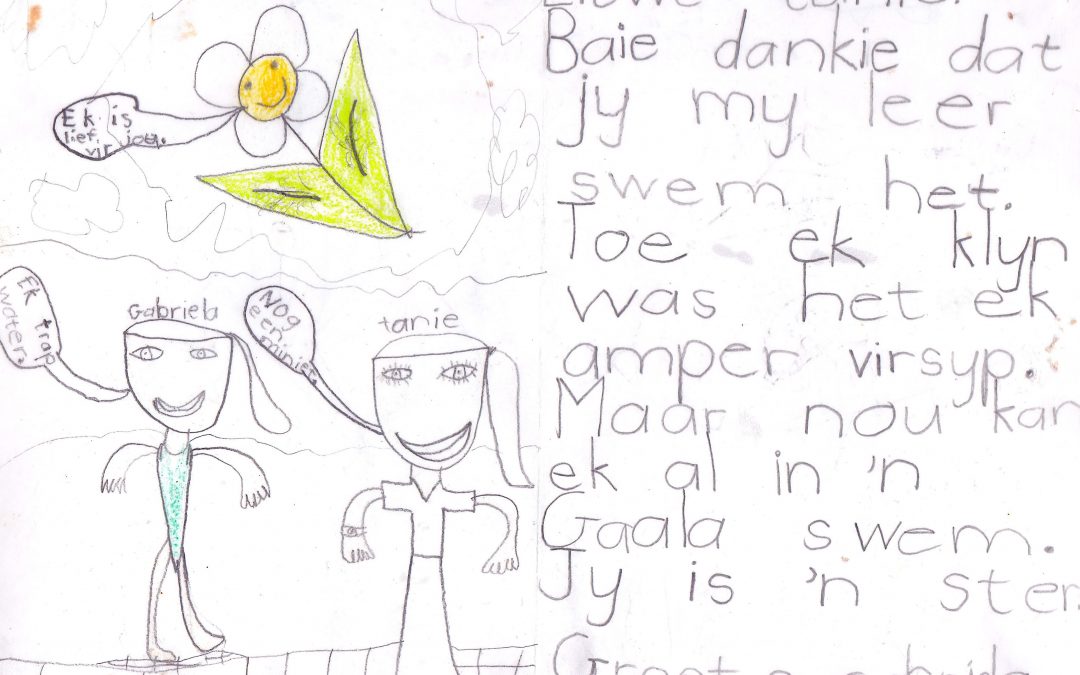 Ek is
lief
vir jou.
Ek trap
water.
Gabriela
Nog
een
miniet.
tanie
Baie dankie dat
jy my leer
swem het.
Toe ek klyn
was het ek
amper virsyp.
Maar nou kan
ek al in 'n
Gaala swem.
Jy is 'n ster.